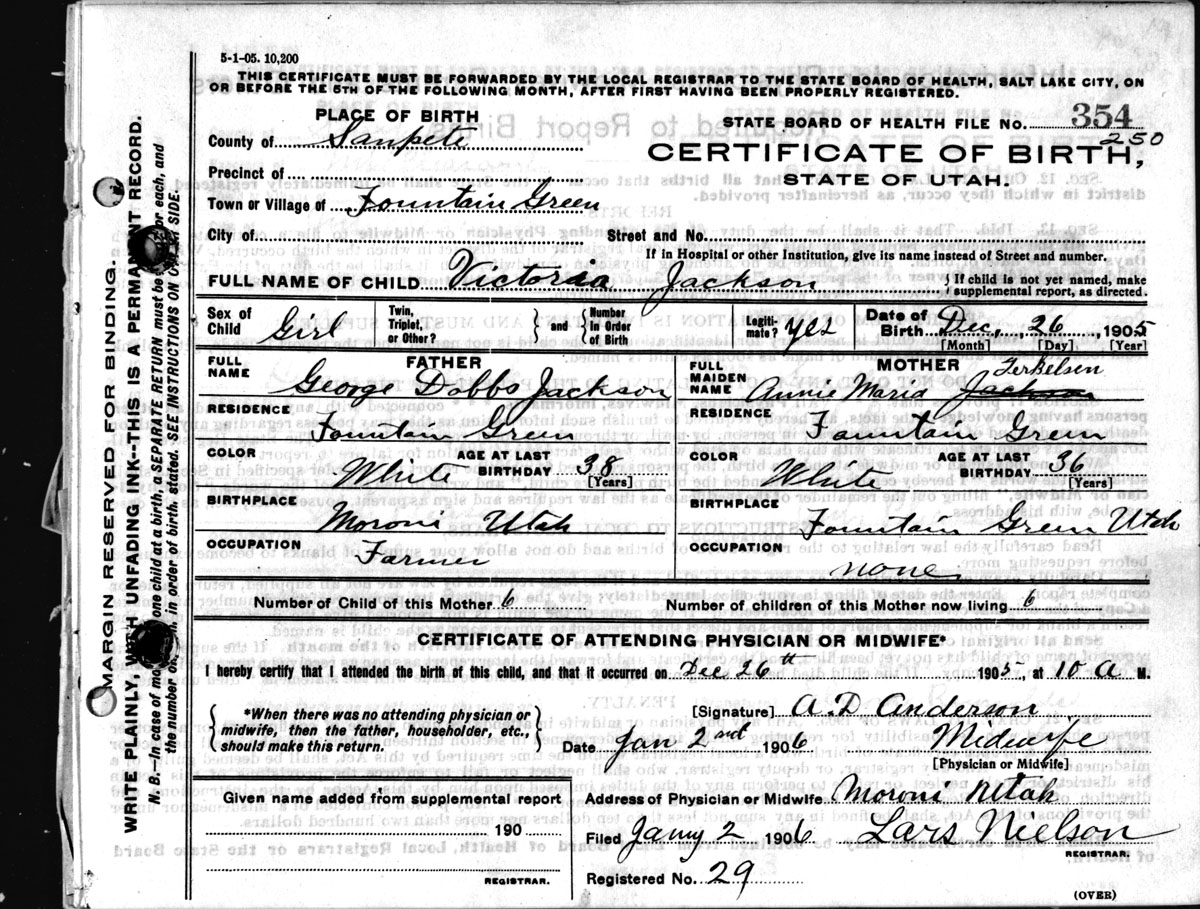 5-1-05. 10,200
THIS CERTIFICATE MUST BE FORWARDED BY THE LOCAL REGISTRAR TO THE STATE BOARD OF HEALTH, SALT LAKE CITY, ON
OR BEFORE THE 5TH OF THE FOLLOWING MONTH, AFTER FIRST HAVING BEEN PROPERLY REGISTERED.
PLACE OF BIRTH
STATE BOARD OF HEALTH FILE No. 354
250
County of Sanpete
CERTIFICATE OF BIRTH,
STATE OF UTAH.
Precinct of
Town or Village of Fountain Green
City of Street and No.
If in Hospital or other Institution, give its name instead of Street and number.
FULL NAME OF CHILD Victoria Jackson } If child is not yet named, make
supplemental report, as directed.
Sex of Child Girl Twin, Triplet, or Other? } and { Number in Order of Birth Legiti-mate? yes Date of Birth Dec. 26, 1905
[Month] [Day] [Year]
FATHER
FULL NAME George Dobbs Jackson
RESIDENCE
Fountain Green
COLOR White AGE AT LAST BIRTHDAY 38
[Years]
BIRTHPLACE
Moroni Utah
OCCUPATION
Farmer
MOTHER
FULL MAIDEN NAME Annie Maria Jackson Terkelsen
RESIDENCE
Fountain Green
COLOR White AGE AT LAST BIRTHDAY 36
[Years]
BIRTHPLACE
Fountain Green Utah
OCCUPATION
none
Number of Child of this Mother 6 Number of children of this Mother now living 6
CERTIFICATE OF ATTENDING PHYSICIAN OR MIDWIFE*
I hereby certify that I attended the birth of this child, and that it occurred on Dec 26th 1905, at 10 A M.
{ *When there was no attending physician or
midwife, then the father, householder, etc.,
should make this return. }
[Signature] A. D Anderson
Date Jan 2nd 1906 Midwife
[Physician or Midwife]
Given name added from supplemental report
190
REGISTRAR.
Address of Physician or Midwife Moroni Utah
Filed Jany 2 1906 Lars Nielson
REGISTRAR.
Registered No. 29
(OVER)
MARGIN RESERVED FOR BINDING.
WRITE PLAINLY, WITH UNFADING INK--THIS IS A PERMANENT RECORD.
N. B.--In case of mo one child at a birth, a SEPARATE RETURN must be for each, and
the number in order of birth, stated. SEE INSTRUCTIONS ON SIDE.